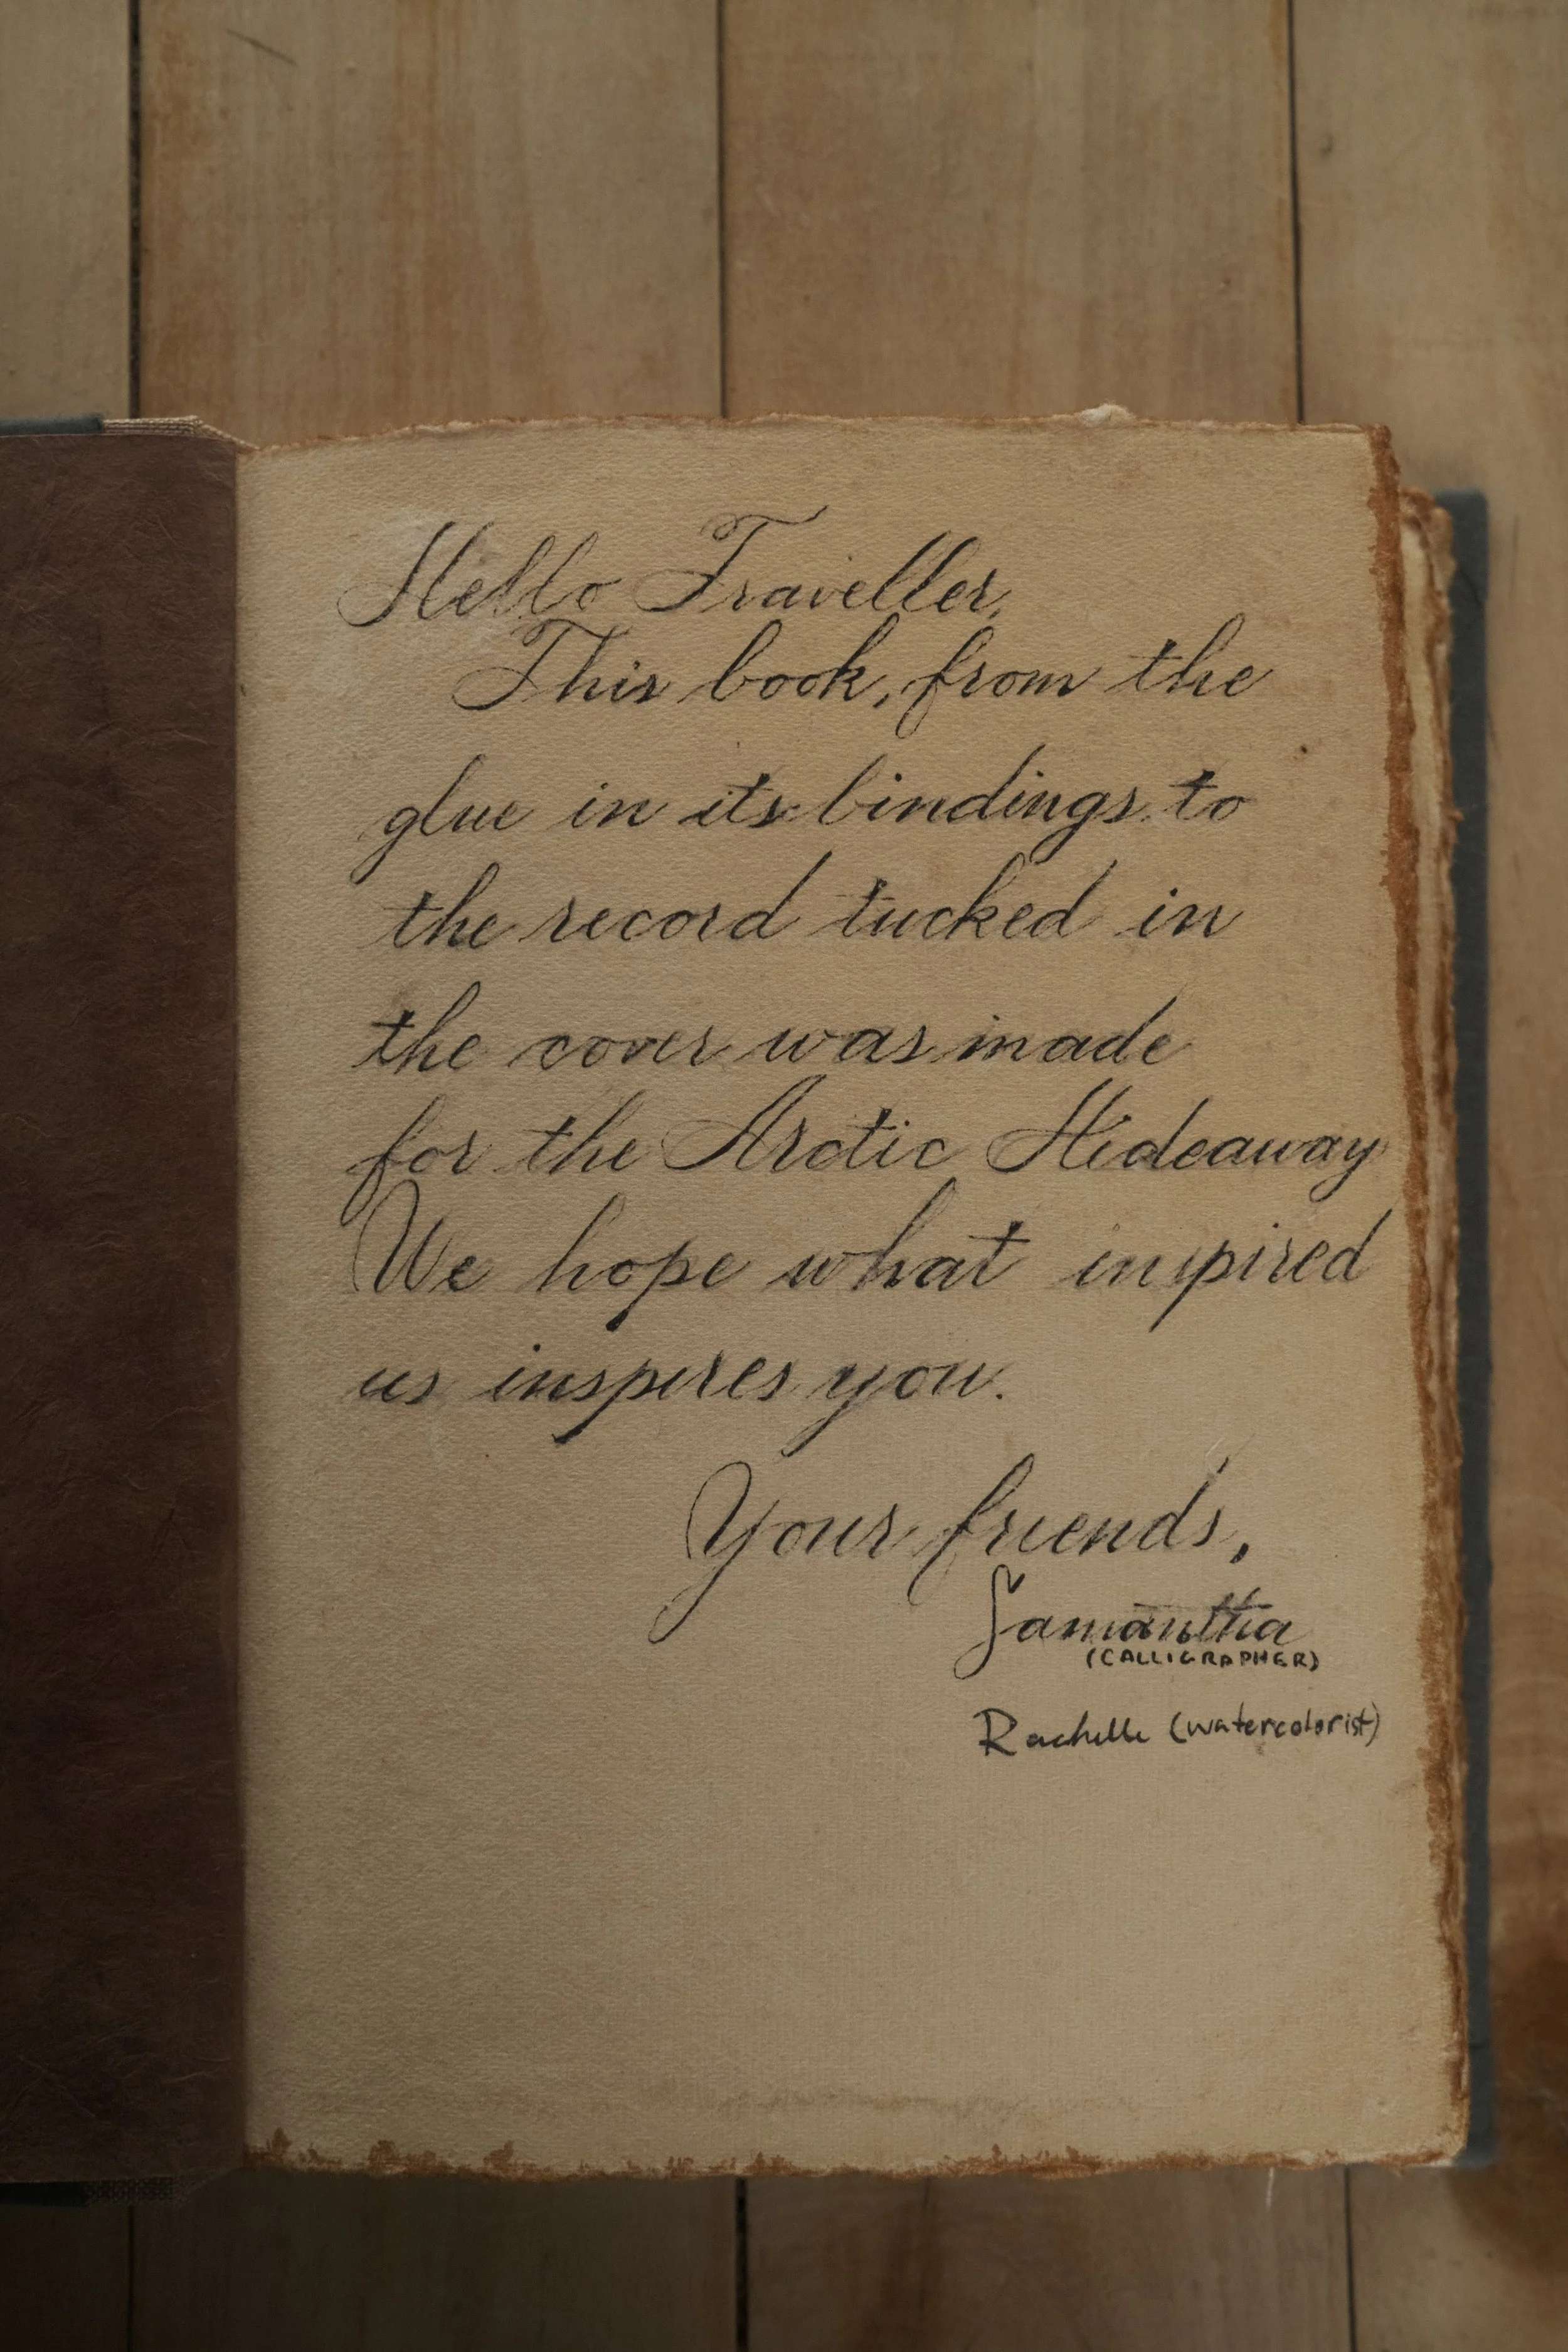 Hello Traveller,
This book, from the
glue in its bindings to
the record tucked in
the cover was made
for the Arctic Hideaway
We hope what inspired
us inspires you.
Your friends,
Samantha
(CALLIGRAPHER)
Rachelle (watercolorist)